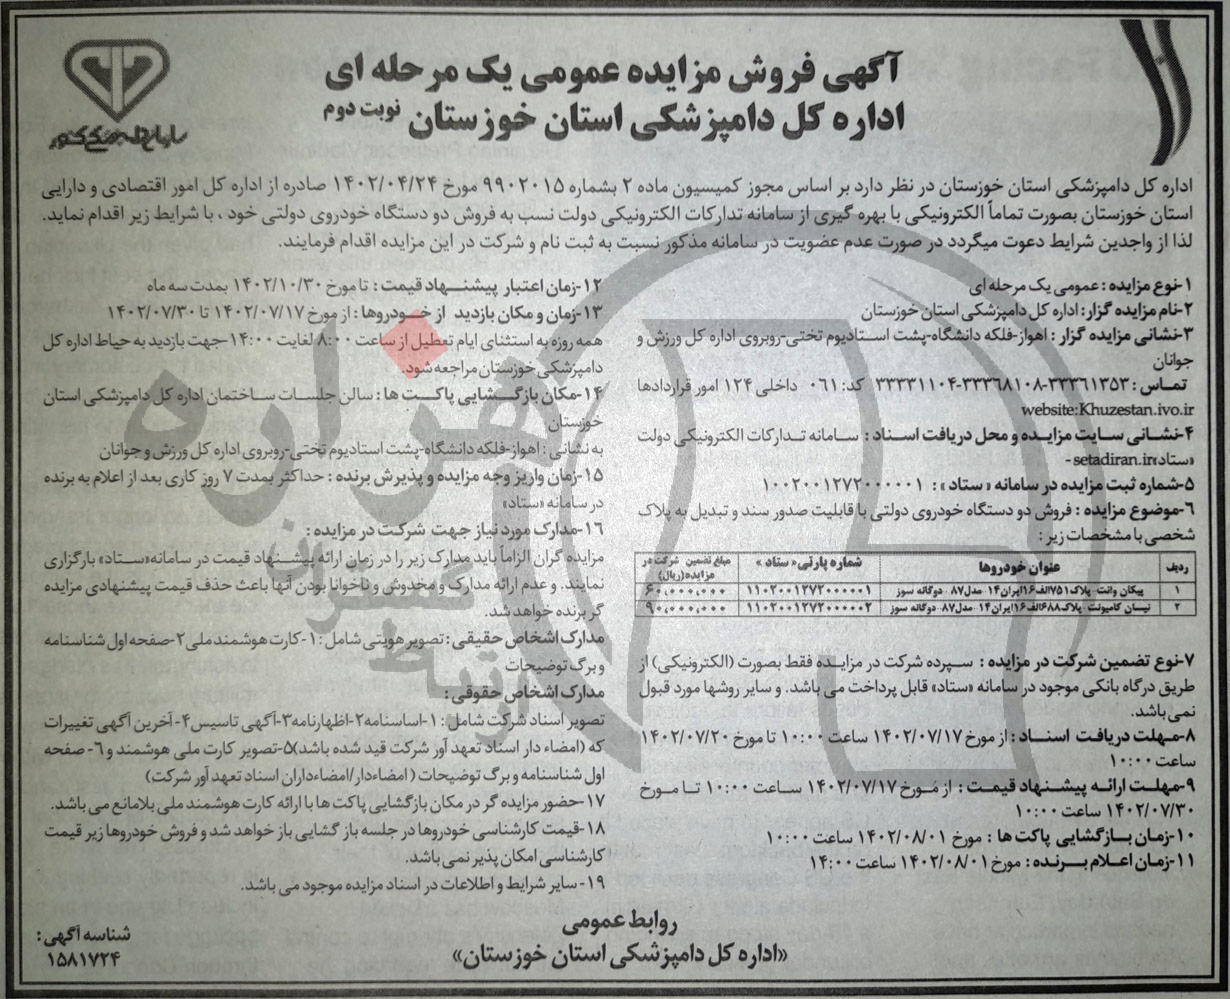 آگهی فروش مزایده عمومی یک مرحله ای
اداره کل دامپزشکی استان خوزستان نوبت دوم
سازمان دامپزشکی کشور
اداره کل دامپزشکی استان خوزستان در نظر دارد بر اساس مجوز کمیسیون ماده ۲ بشماره ۹۹۰۲۰۱۵ مورخ ۱۴۰۲/۰۴/۲۴ صادره از اداره کل امور اقتصادی و دارایی
استان خوزستان بصورت تماماً الکترونیکی با بهره گیری از سامانه تدارکات الکترونیکی دولت نسب به فروش دو دستگاه خودروی دولتی خود ، با شرایط زیر اقدام نماید.
لذا از واجدین شرایط دعوت میگردد در صورت عدم عضویت در سامانه مذکور نسبت به ثبت نام و شرکت در این مزایده اقدام فرمایند.
۱-نوع مزایده : عمومی یک مرحله ای
۲-نام مزایده گزار: اداره کل دامپزشکی استان خوزستان
۳-نشانی مزایده گزار : اهواز-فلکه دانشگاه-پشت استادیوم تختی-روبروی اداره کل ورزش و
جوانان
تماس : ۳۳۳۶۱۳۵۳-۳۳۳۶۸۱۰۸-۳۳۳۳۱۱۰۴ کد: ۰۶۱ داخلی ۱۲۴ امور قراردادها
website:Khuzestan.ivo.ir
۴-نشانی سایت مزایده و محل دریافت اسناد : سامانه تدارکات الکترونیکی دولت
«ستاد»setadiran.ir -
۵-شماره ثبت مزایده در سامانه « ستاد » : ۱۰۰۲۰۰۱۲۷۲۰۰۰۰۰۱
۶-موضوع مزایده : فروش دو دستگاه خودروی دولتی با قابلیت صدور سند و تبدیل به پلاک
شخصی با مشخصات زیر :
ردیف عنوان خودروها شماره پارتی« ستاد » مبلغ تضمین شرکت در مزایده(ریال)
۱ پیکان وانت پلاک۷۵۱الف۱۶ایران۱۴ مدل۸۷ دوگانه سوز ۱۱۰۲۰۰۱۲۷۲۰۰۰۰۰۱ ۶۰,۰۰۰,۰۰۰
۲ نیسان کامیونت پلاک۶۸۸الف۱۶ایران۱۴ مدل۸۷ دوگانه سوز ۱۱۰۲۰۰۱۲۷۲۰۰۰۰۰۲ ۹۰,۰۰۰,۰۰۰
۷-نوع تضمین شرکت در مزایده : سپرده شرکت در مزایده فقط بصورت (الکترونیکی) از
طریق درگاه بانکی موجود در سامانه «ستاد» قابل پرداخت می باشد. و سایر روشها مورد قبول
نمی باشد.
۸-مهلت دریافت اسناد : از مورخ ۱۴۰۲/۰۷/۱۷ ساعت ۱۰:۰۰ تا مورخ ۱۴۰۲/۰۷/۲۰
ساعت ۱۰:۰۰
۹-مهلت ارائه پیشنهاد قیمت : از مورخ ۱۴۰۲/۰۷/۱۷ ساعت ۱۰:۰۰ تا مورخ
۱۴۰۲/۰۷/۳۰ ساعت ۱۰:۰۰
۱۰-زمان بازگشایی پاکت ها : مورخ ۱۴۰۲/۰۸/۰۱ ساعت ۱۰:۰۰
۱۱-زمان اعلام برنده : مورخ ۱۴۰۲/۰۸/۰۱ ساعت ۱۴:۰۰
۱۲-زمان اعتبار پیشنهاد قیمت : تا مورخ ۱۴۰۲/۱۰/۳۰ بمدت سه ماه
۱۳-زمان و مکان بازدید از خودروها : از مورخ ۱۴۰۲/۰۷/۱۷ تا ۱۴۰۲/۰۷/۳۰
همه روزه به استثنای ایام تعطیل از ساعت ۸:۰۰ لغایت ۱۴:۰۰-جهت بازدید به حیاط اداره کل
دامپزشکی خوزستان مراجعه شود.
۱۴-مکان بازگشایی پاکت ها : سالن جلسات ساختمان اداره کل دامپزشکی استان
خوزستان
به نشانی : اهواز-فلکه دانشگاه-پشت استادیوم تختی-روبروی اداره کل ورزش و جوانان
۱۵-زمان واریز وجه مزایده و پذیرش برنده : حداکثر بمدت ۷ روز کاری بعد از اعلام به برنده
در سامانه «ستاد»
۱۶-مدارک مورد نیاز جهت شرکت در مزایده :
مزایده گران الزاماً باید مدارک زیر را در زمان ارائه پیشنهاد قیمت در سامانه«ستاد» بارگزاری
نمایند. و عدم ارائه مدارک و مخدوش و ناخوانا بودن آنها باعث حذف قیمت پیشنهادی مزایده
گر برنده خواهد شد.
مدارک اشخاص حقیقی : تصویر هویتی شامل : ۱-کارت هوشمند ملی ۲-صفحه اول شناسنامه
و برگ توضیحات
مدارک اشخاص حقوقی :
تصویر اسناد شرکت شامل : ۱-اساسنامه ۲-اظهارنامه ۳-آگهی تاسیس ۴- آخرین آگهی تغییرات
که (امضاء دار اسناد تعهد آور شرکت قید شده باشد)۵-تصویر کارت ملی هوشمند و ۶- صفحه
اول شناسنامه و برگ توضیحات ( امضاءدار/امضاءداران اسناد تعهد آور شرکت)
۱۷-حضور مزایده گر در مکان بازگشایی پاکت ها با ارائه کارت هوشمند ملی بلامانع می باشد.
۱۸-قیمت کارشناسی خودروها در جلسه باز گشایی باز خواهد شد و فروش خودروها زیر قیمت
کارشناسی امکان پذیر نمی باشد.
۱۹- سایر شرایط و اطلاعات در اسناد مزایده موجود می باشد.
روابط عمومی
«اداره کل دامپزشکی استان خوزستان»
شناسه آگهی :
۱۵۸۱۷۲۴
هزاره